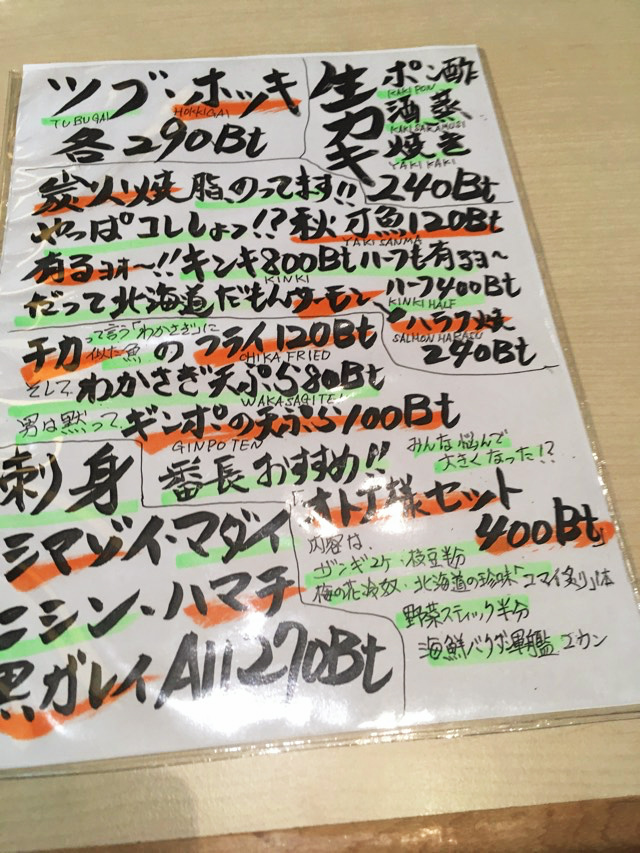 ツブ・ホッキ
TUBUGAI HOKKIGAI
各290Bt
生カキ
ポン酢
KAKI PON
酒蒸
KAKI SAKAMUSI
焼き
YAKI KAKI
240Bt
炭火焼 脂のってます!!
やっぱコレしょっ!?秋刀魚120Bt
YAKI SANMA
有るヨォ〜!!キンキ800Btハーフも有るヨ〜
KINKI
ハーフ400Bt
KINKI HALF
だって北海道だもんサーモン
ハラス焼
SALMON HARASU
240Bt
チカって言う「わかさぎ」に似た魚のフライ120Bt
CHIKA FRIED
そして、わかさぎ天ぷら80Bt
WAKASAGITE
男は黙って、ギンポの天ぷら100Bt
GINPO TEN
刺身
シマゾイ・マダイ
ニシン・ハマチ
黒ガレイ All 270Bt
番長おすすめ!!
みんな悩んで
大きくなった!?
「オトナ様セット
400Bt」
内容は、
ザンギ2ケ・枝豆半分
梅の花冷奴・北海道の珍味「コマイ炙り」1体
野菜スティック半分
海鮮バクダン軍艦 2カン